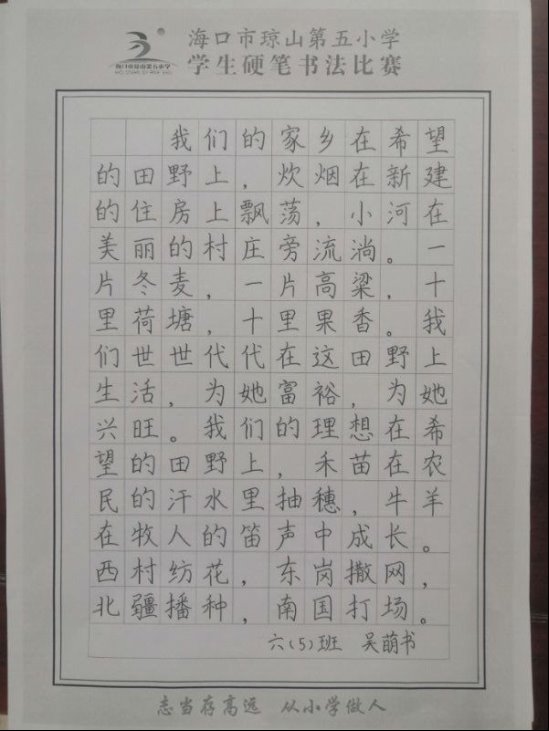 海口市琼山第五小学
学生硬笔书法比赛
我们的家乡在希望
的田野上，炊烟在新建
的住房上飘荡，小河在
美丽的村庄旁流淌。一
片冬麦，一片高粱，十
里荷塘，十里果香。我
们世世代代在这田野上
生活，为她富裕，为她
兴旺。我们的理想在希
望的田野上，禾苗在农
民的汗水里抽穗，牛羊
在牧人的笛声中成长。
西村纺花，东岗撒网，
北疆播种，南国打场。
六(5)班 吴萌书
志当存高远 从小学做人